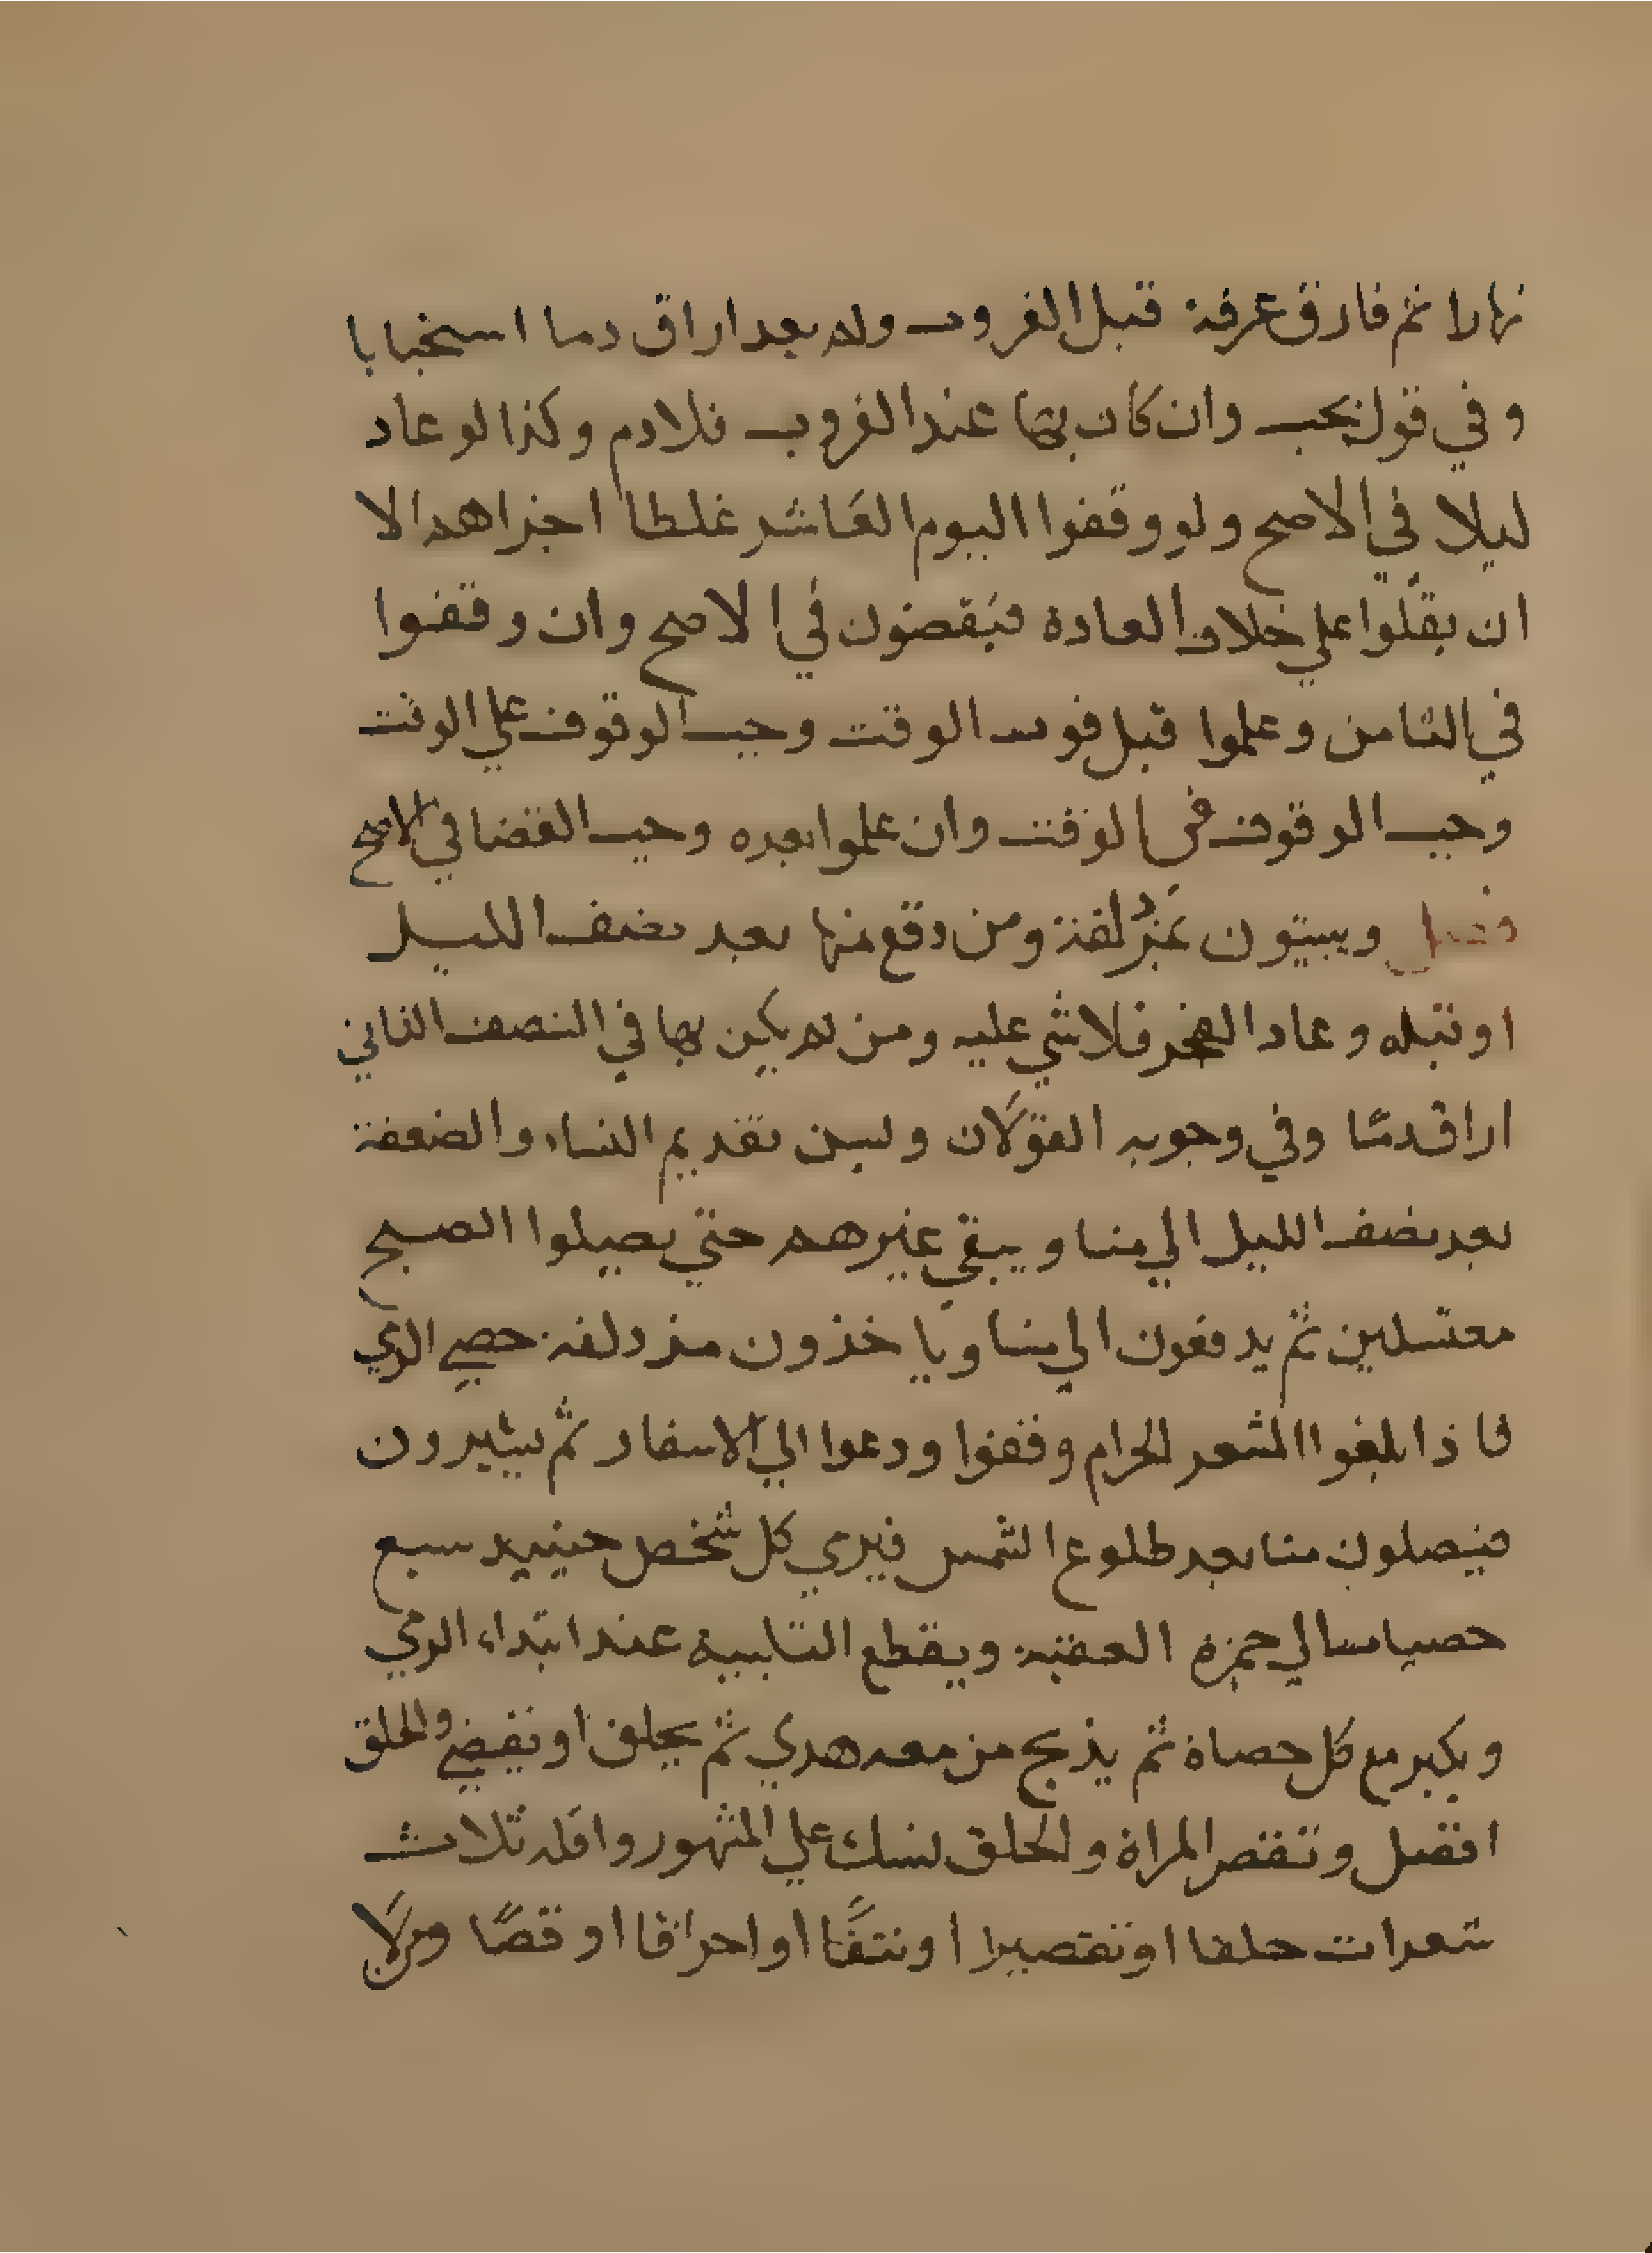 نهارا ثم فارق عرفة قبل الغروب ولم يعد اراق دما استحبابا
وفي قول يجب وان كان بها عند الغروب فلا دم وكذا لو عاد
ليلا في الاصح ولو وقفوا اليوم العاشر غلطا اجزاهم الا
ان يقلوا على خلاف العادة فيقضون في الاصح وان وقفوا
في الثامن وعلموا قبل فوت الوقت وجب الوقوف علي الوقت
وجب الوقوف في الوقت وان علموا بعده وجب القضا في الاصح
فصل ويبيتون بمزدلفة ومن دفع منها بعد نصف الليل
او قبله وعاد الفجر فلا شي عليه ومن لم يكن بها في النصف الثاني
اراق دمًا وفي وجوبه القولان ويسن تقديم النساء والضعفة
بعد نصف الليل الي منا ويبقي غيرهم حتي يصلوا الصبح
مغتسلين ثم يدفعون الي منا وياخذون مزدلفة حصي الرمي
فاذا بلغوا المشعر الحرام وقفوا ودعوا الي الاسفار ثم يسيرون
فيصلون منا بعد طلوع الشمس فيرمي كل شخص حينيد سبع
حصيات الي جمرة العقبة ويقطع التلبية عند ابتداء الرمي
ويكبر مع كل حصاة ثم يذبح من معه هدي ثم يحلق او يقصر والحلق
افضل وتقصر المراة والحلق نسك علي المشهور واقله ثلاث
شعرات حلقا او تقصيرا او نتفًا او احراقا او قصًا ومن لا